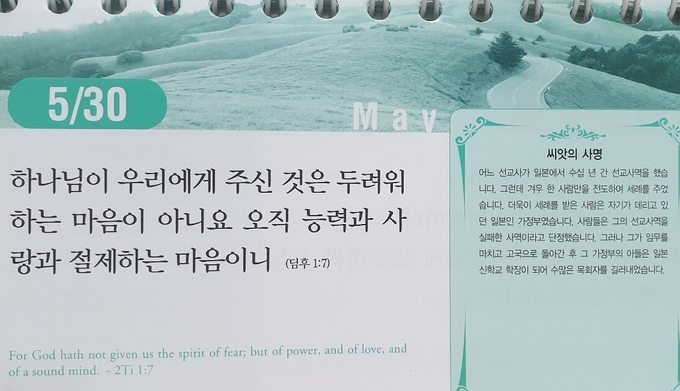 5/30
May
하나님이 우리에게 주신 것은 두려워
하는 마음이 아니요 오직 능력과 사
랑과 절제하는 마음이니 (딤후 1:7)
For God hath not given us the spirit of fear; but of power, and of love, and
of a sound mind. - 2Ti 1:7
씨앗의 사명
어느 선교사가 일본에서 수십 년 간 선교사역을 했습
니다. 그런데 겨우 한 사람만을 전도하여 세례를 주었
습니다. 더욱이 세례를 받은 사람은 자기가 데리고 있
던 일본인 가정부였습니다. 사람들은 그의 선교사역을
실패한 사역이라고 단정했습니다. 그러나 그가 임무를
마치고 고국으로 돌아간 후 그 가정부의 아들은 일본
신학교 학장이 되어 수많은 목회자를 길러내었습니다.